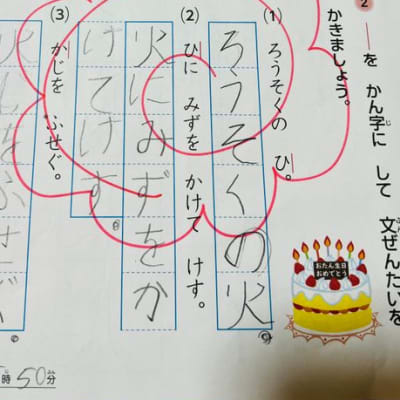 2 ―を かん字に して 文ぜんたいを
かきましょう。
(1) ろうそくの ひ。
ろうそくの火
(2) ひに みずを かけて けす。
火にみずをか
けてけす
(3) かじを ふせぐ。
おたん生日
おめでとう
時50分